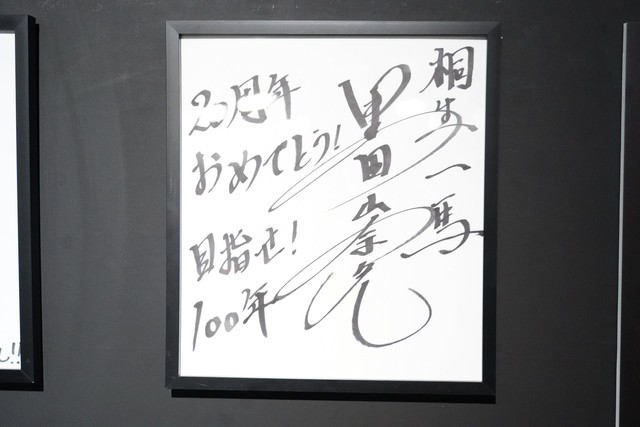 桐生一馬
黒田崇矢
20周年
おめでとう!
目指せ!
100年